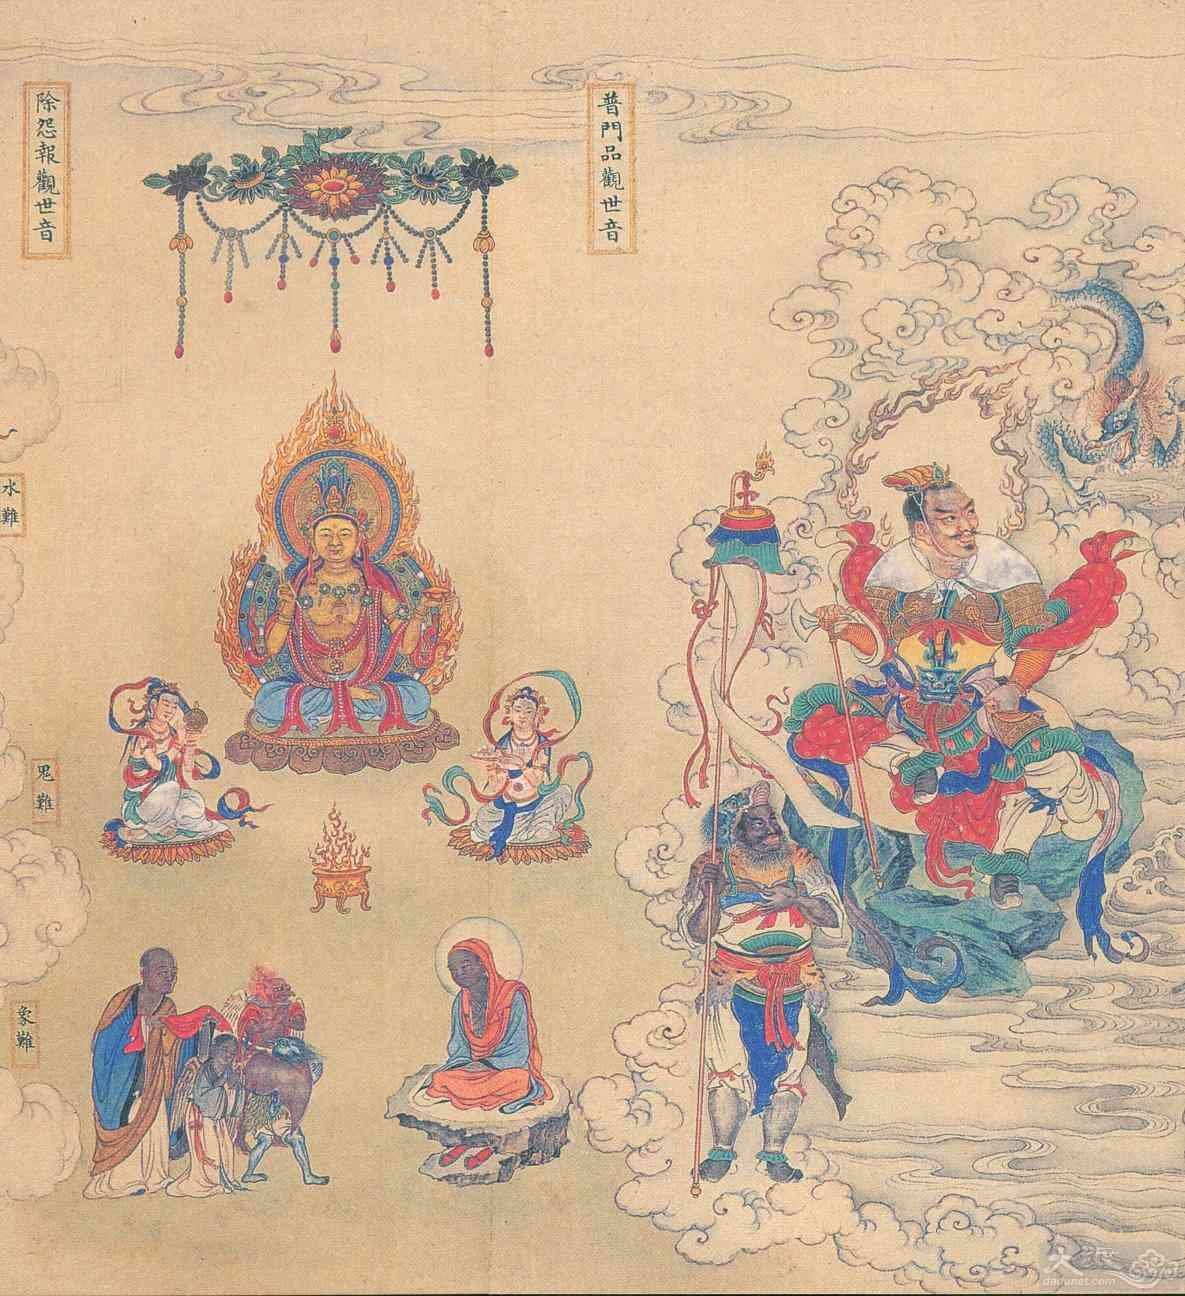 普門品觀世音
除怨報觀世音
水難
鬼難
象難
大都
dadunet.com